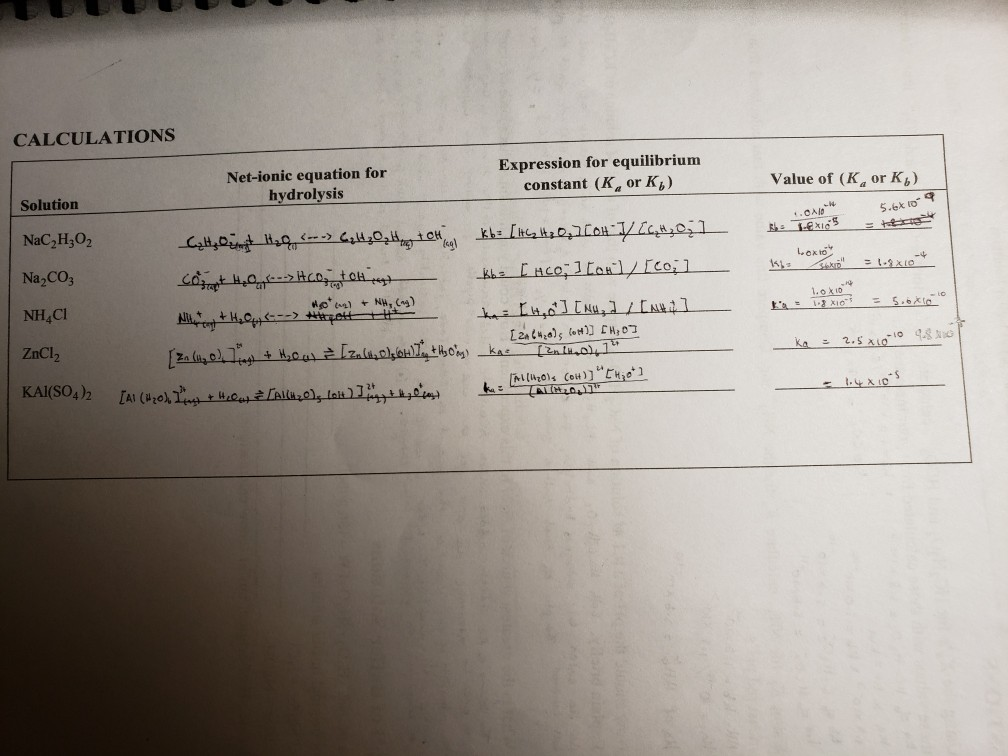 CALCULATIONS
Solution Net-ionic equation for hydrolysis Expression for equilibrium constant (Kₐ or K_b) Value of (Kₐ or K_b)
NaC₂H₃O₂ C₂H₃O₂⁻(aq) + H₂O(l) <---> C₂H₃O₂H(aq) + OH⁻(aq) Kb = [HC₂H₃O₂][OH⁻]/[C₂H₃O₂⁻] Kb = 1.0x10⁻¹⁴ / 1.8x10⁻⁵ = 5.6x10⁻⁹
Na₂CO₃ CO₃⁻(aq) + H₂O(l) <---> HCO₃⁻(aq) + OH⁻(aq) Kb = [HCO₃⁻][OH⁻]/[CO₃⁻] Kb = 1.0x10⁻⁴ / 5.6x10⁻¹¹ = 1.8x10⁻⁴
NH₄Cl NH₄⁺(aq) + H₂O(l) <---> H₃O⁺(aq) + NH₃(aq) Ka = [H₃O⁺][NH₃]/[NH₄⁺] Ka = 1.0x10⁻¹⁴ / 1.8x10⁻⁵ = 5.6x10⁻¹⁰
ZnCl₂ [Zn(H₂O)₆]²⁺(aq) + H₂O(l) ⇌ [Zn(H₂O)₅(OH)]⁺(aq) + H₃O⁺(aq) Ka = [Zn(H₂O)₅(OH)][H₃O] / [Zn(H₂O)₆]²⁺ Ka = 2.5x10⁻¹⁰
KAl(SO₄)₂ [Al(H₂O)₆]³⁺(aq) + H₂O(l) ⇌ [Al(H₂O)₅(OH)]²⁺(aq) + H₃O⁺(aq) Ka = [Al(H₂O)₅(OH)]²⁺[H₃O⁺] / [Al(H₂O)₆]³⁺ = 1.4x10⁻⁵